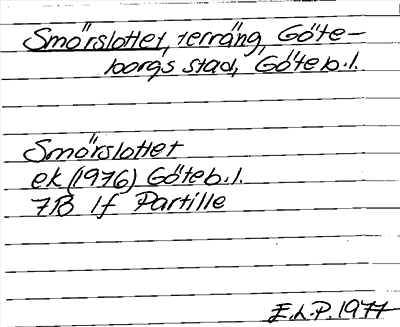 Smörslottet, terräng, Göte-
borgs stad, Göteb.l.
Smörslottet
ek (1976) Göteb.l.
7B 1f Partille
E.L.P. 1977